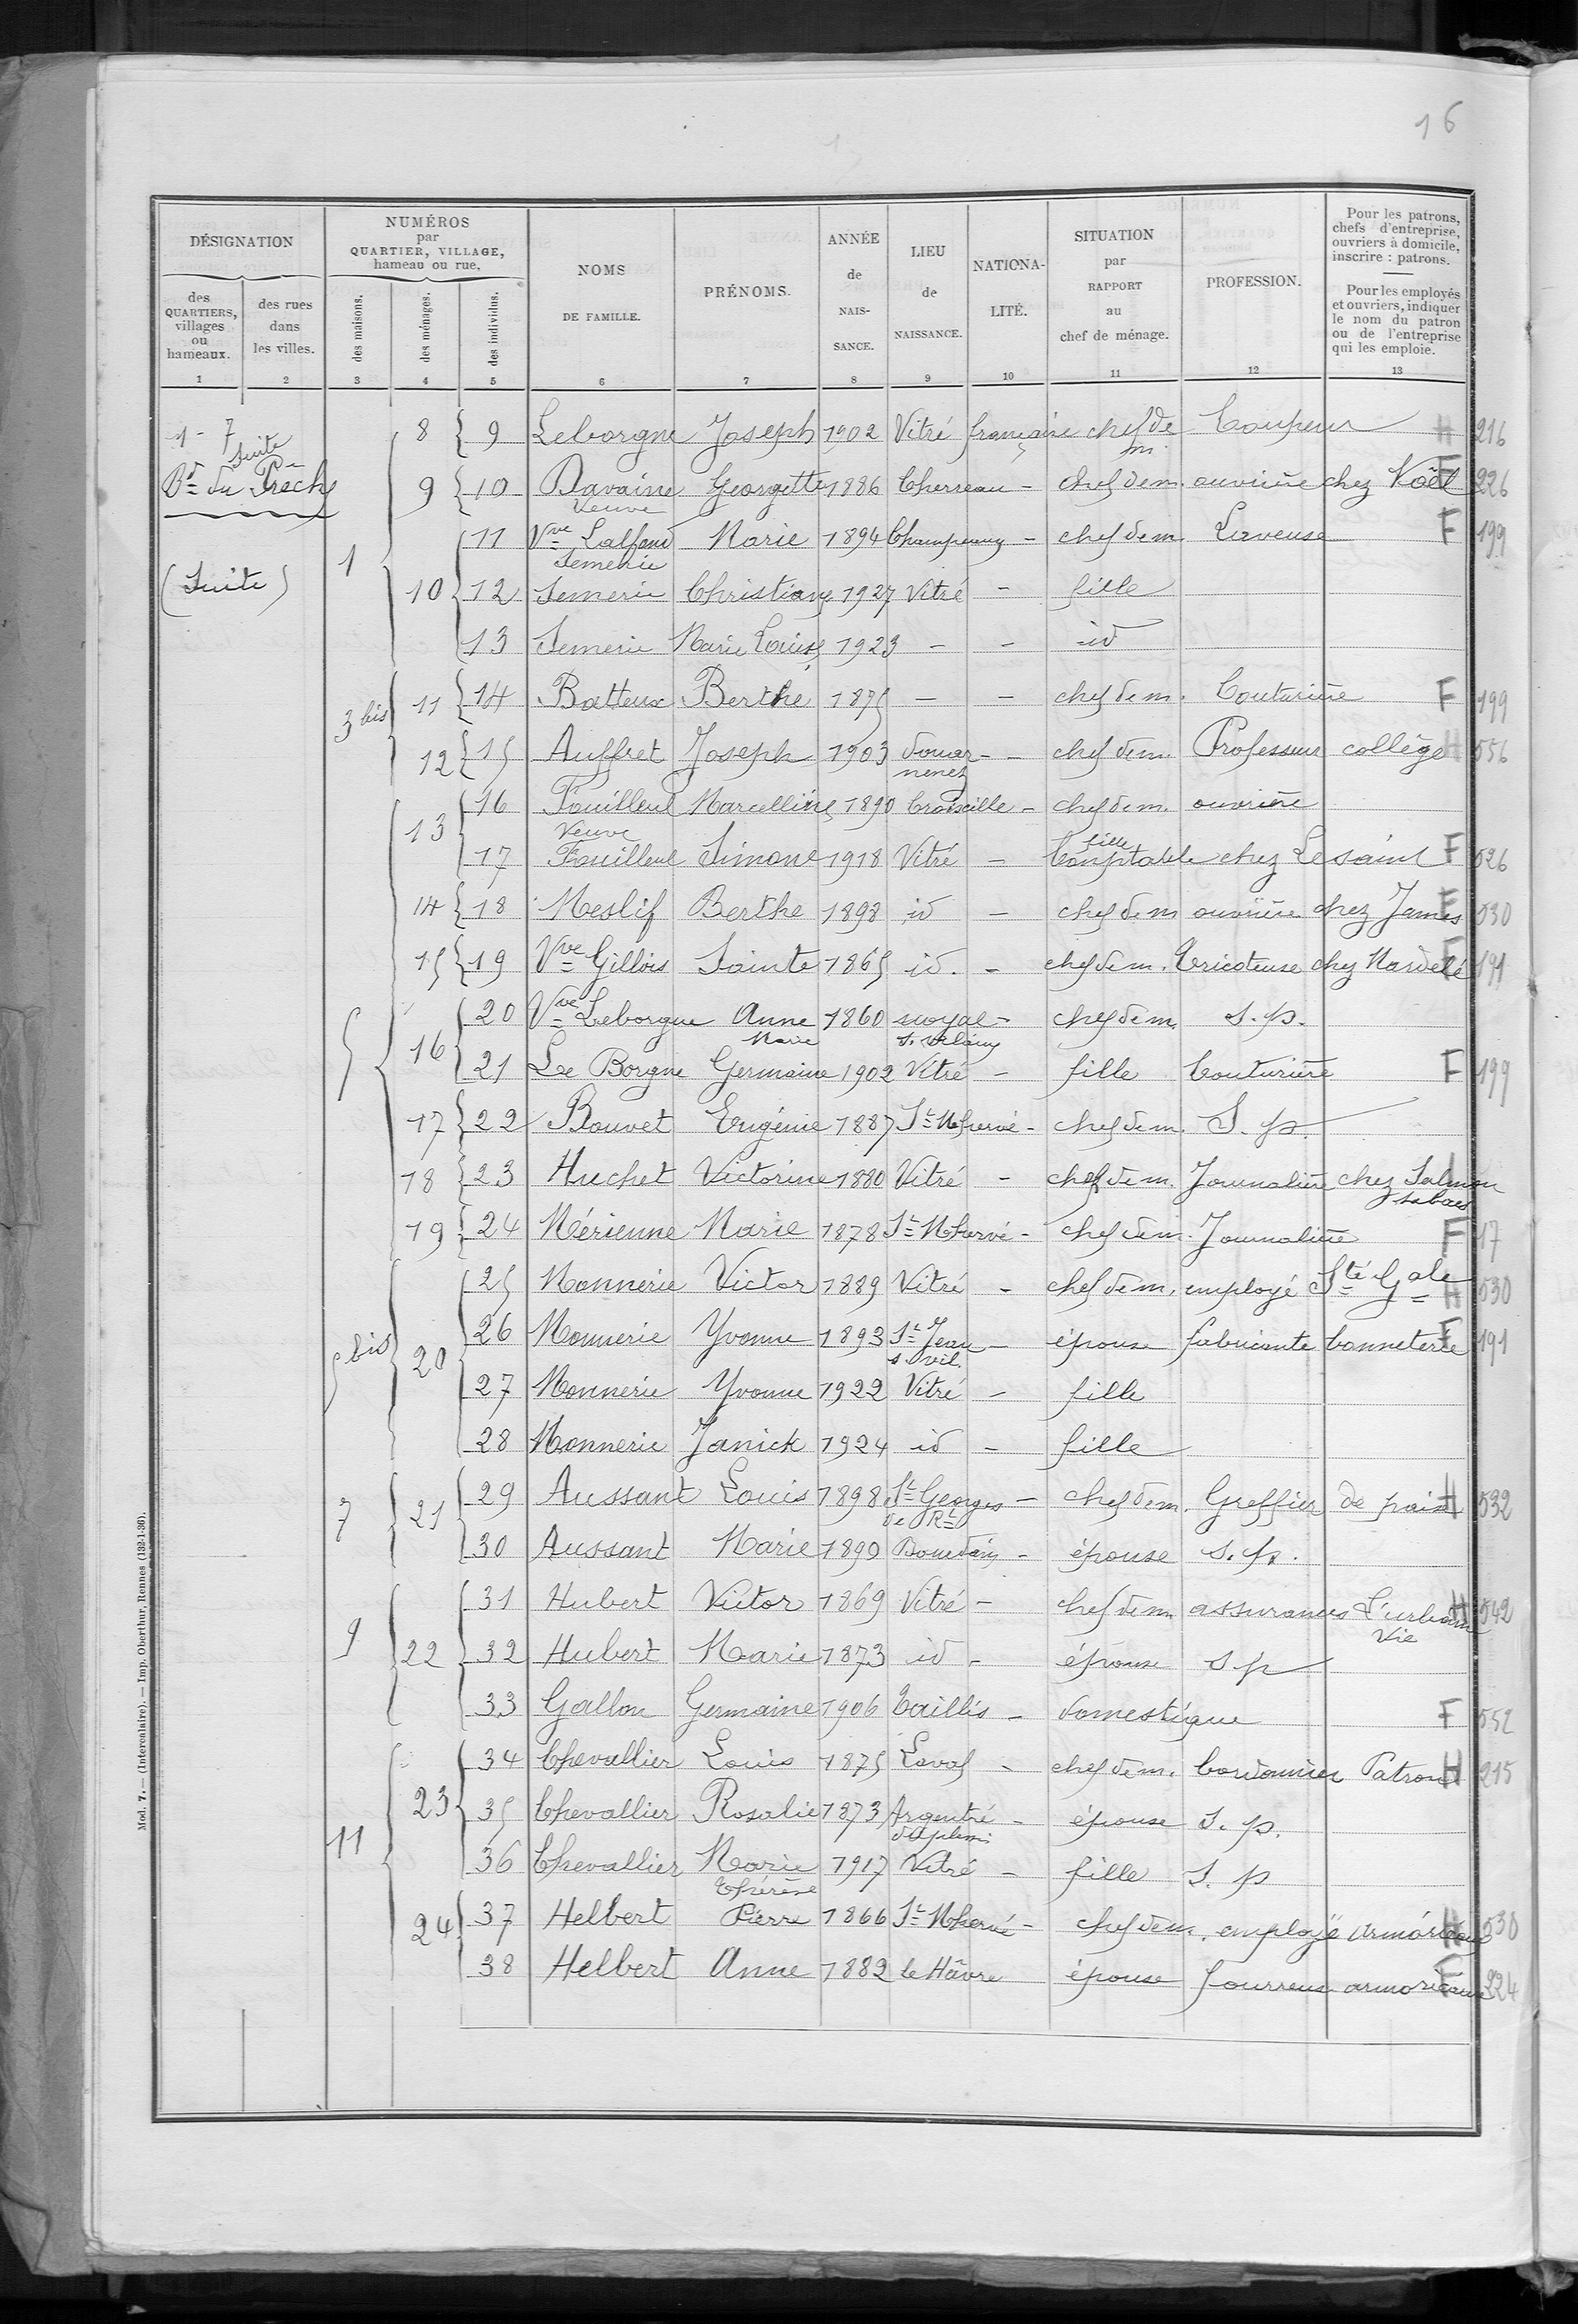 16
DÉSIGNATION
des QUARTIERS, villages ou hameaux.
des rues dans les villes.
NUMÉROS par QUARTIER, VILLAGE, hameau ou rue.
des maisons.
des ménages.
des individus.
NOMS DE FAMILLE.
PRÉNOMS.
ANNÉE de NAIS- SANCE.
LIEU de NAISSANCE.
NATIONA- LITÉ.
SITUATION par RAPPORT au chef de ménage.
PROFESSION.
Pour les patrons, chefs d'entreprise, ouvriers à domicile, inscrire : patrons.
Pour les employés et ouvriers, indiquer le nom du patron ou de l'entreprise qui les emploie.
1 2 3 4 5 6 7 8 9 10 11 12 13
1-7 suite
Bd du Prêche
(Suite)
8 9 Leborgne Joseph 1902 Vitré française chef de m. Coupeur H 216
9 10 Davaine Veuve Georgette 1886 Cherreau - chef de m. ouvrière chez Noël F 226
1 11 Vve Semerie Marie 1894 - chef de m Laveuse F 199
10 12 Semerie Christiane 1927 Vitré - fille
13 Semerie Marie Louise 1923 - - id
3 bis 11 14 Batteux Berthe 1875 - - chef de m. Couturière F 199
12 15 Auffret Joseph 1903 Douar-nenez - chef de m. Professeur collège H 556
13 16 Fouilleul Veuve Marcelline 1890 Croixille - chef de m. ouvrière
17 Fouilleul Simone 1918 Vitré - fille Comptable chez Lesaint F 526
14 18 Meslif Berthe 1898 id - chef de m ouvrière chez James F 530
15 19 Vve Gillois Sainte 1865 id. - chef de m. Tricoteuse chez Nardelé F 191
5 16 20 Vve Leborgne Anne Marie 1860 noyal s. vilaine - chef de m. s.p.
21 Le Borgne Germaine 1902 Vitré - fille Couturière F 199
17 22 Bouvet Eugénie 1887 St Mhervé - chef de m. S.p.
18 23 Huchet Victorine 1880 Vitré - chef de m. Journalière chez Salmon
19 24 Mérienne Marie 1878 St Mhervé - chef de m. Journalière F 17
5 bis 20 25 Monnerie Victor 1889 Vitré - chef de m. employé Sté Gale H 530
26 Monnerie Yvonne 1893 St Jean s. vil. - épouse fabricante bonneterie F 191
27 Monnerie Yvonne 1922 Vitré - fille
28 Monnerie Janick 1924 id - fille
7 21 29 Aussant Louis 1898 St Georges de Rt - chef de m. Greffier de paix H 532
30 Aussant Marie 1899 - épouse s.p.
9 22 31 Hubert Victor 1869 Vitré - chef de m assurances L'urbaine Vie H 542
32 Hubert Marie 1873 id - épouse s p
33 Gallon Germaine 1906 Taillis - domestique F 552
11 23 34 Chevallier Louis 1875 Laval - chef de m. Cordonnier Patron H 215
35 Chevallier Rosalie 1873 Argentré du plessis - épouse S.p.
36 Chevallier Marie Thérèse 1917 Vitré - fille S.p
24 37 Helbert Pierre 1866 St Mhervé - chef de m. employé armoricaine H 530
38 Helbert Anne 1882 le Hâvre épouse fourreuse armoricaine F 224
Mod. 7. — (Intercalaire). — Imp. Oberthur, Rennes (132-1-36).